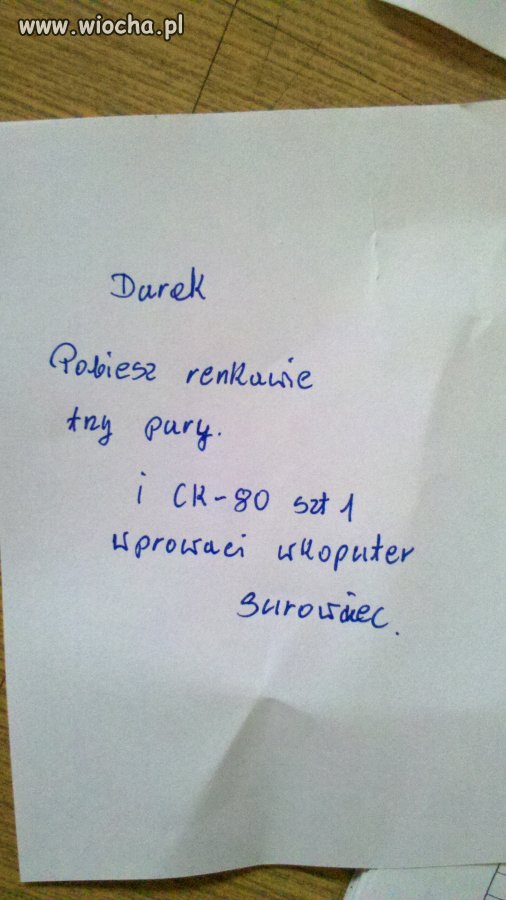 www.wiocha.pl
Darek
Pobiesz renkawie
tzy pary.
i CK-80 szt 1
wprowaci wkoputer
surowiec.